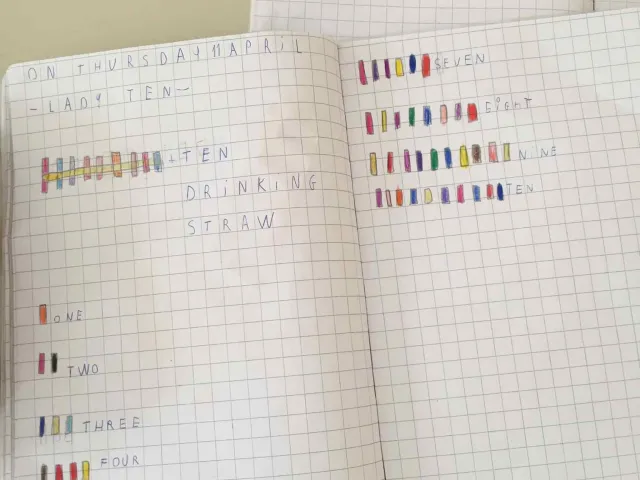 ON THURSDAY 11 APRIL
- LADY TEN -
TEN
DRINKING
STRAW
ONE
TWO
THREE
FOUR
SEVEN
EIGHT
NINE
TEN